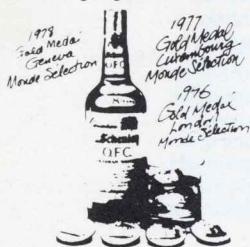 1978
Gold Medal
Geneva
Monde Selection
1977
Gold Medal
Luxembourg
Monde Selection
1976
Gold Medal
London
Monde Selection
OFC
8
Schenley
OFC